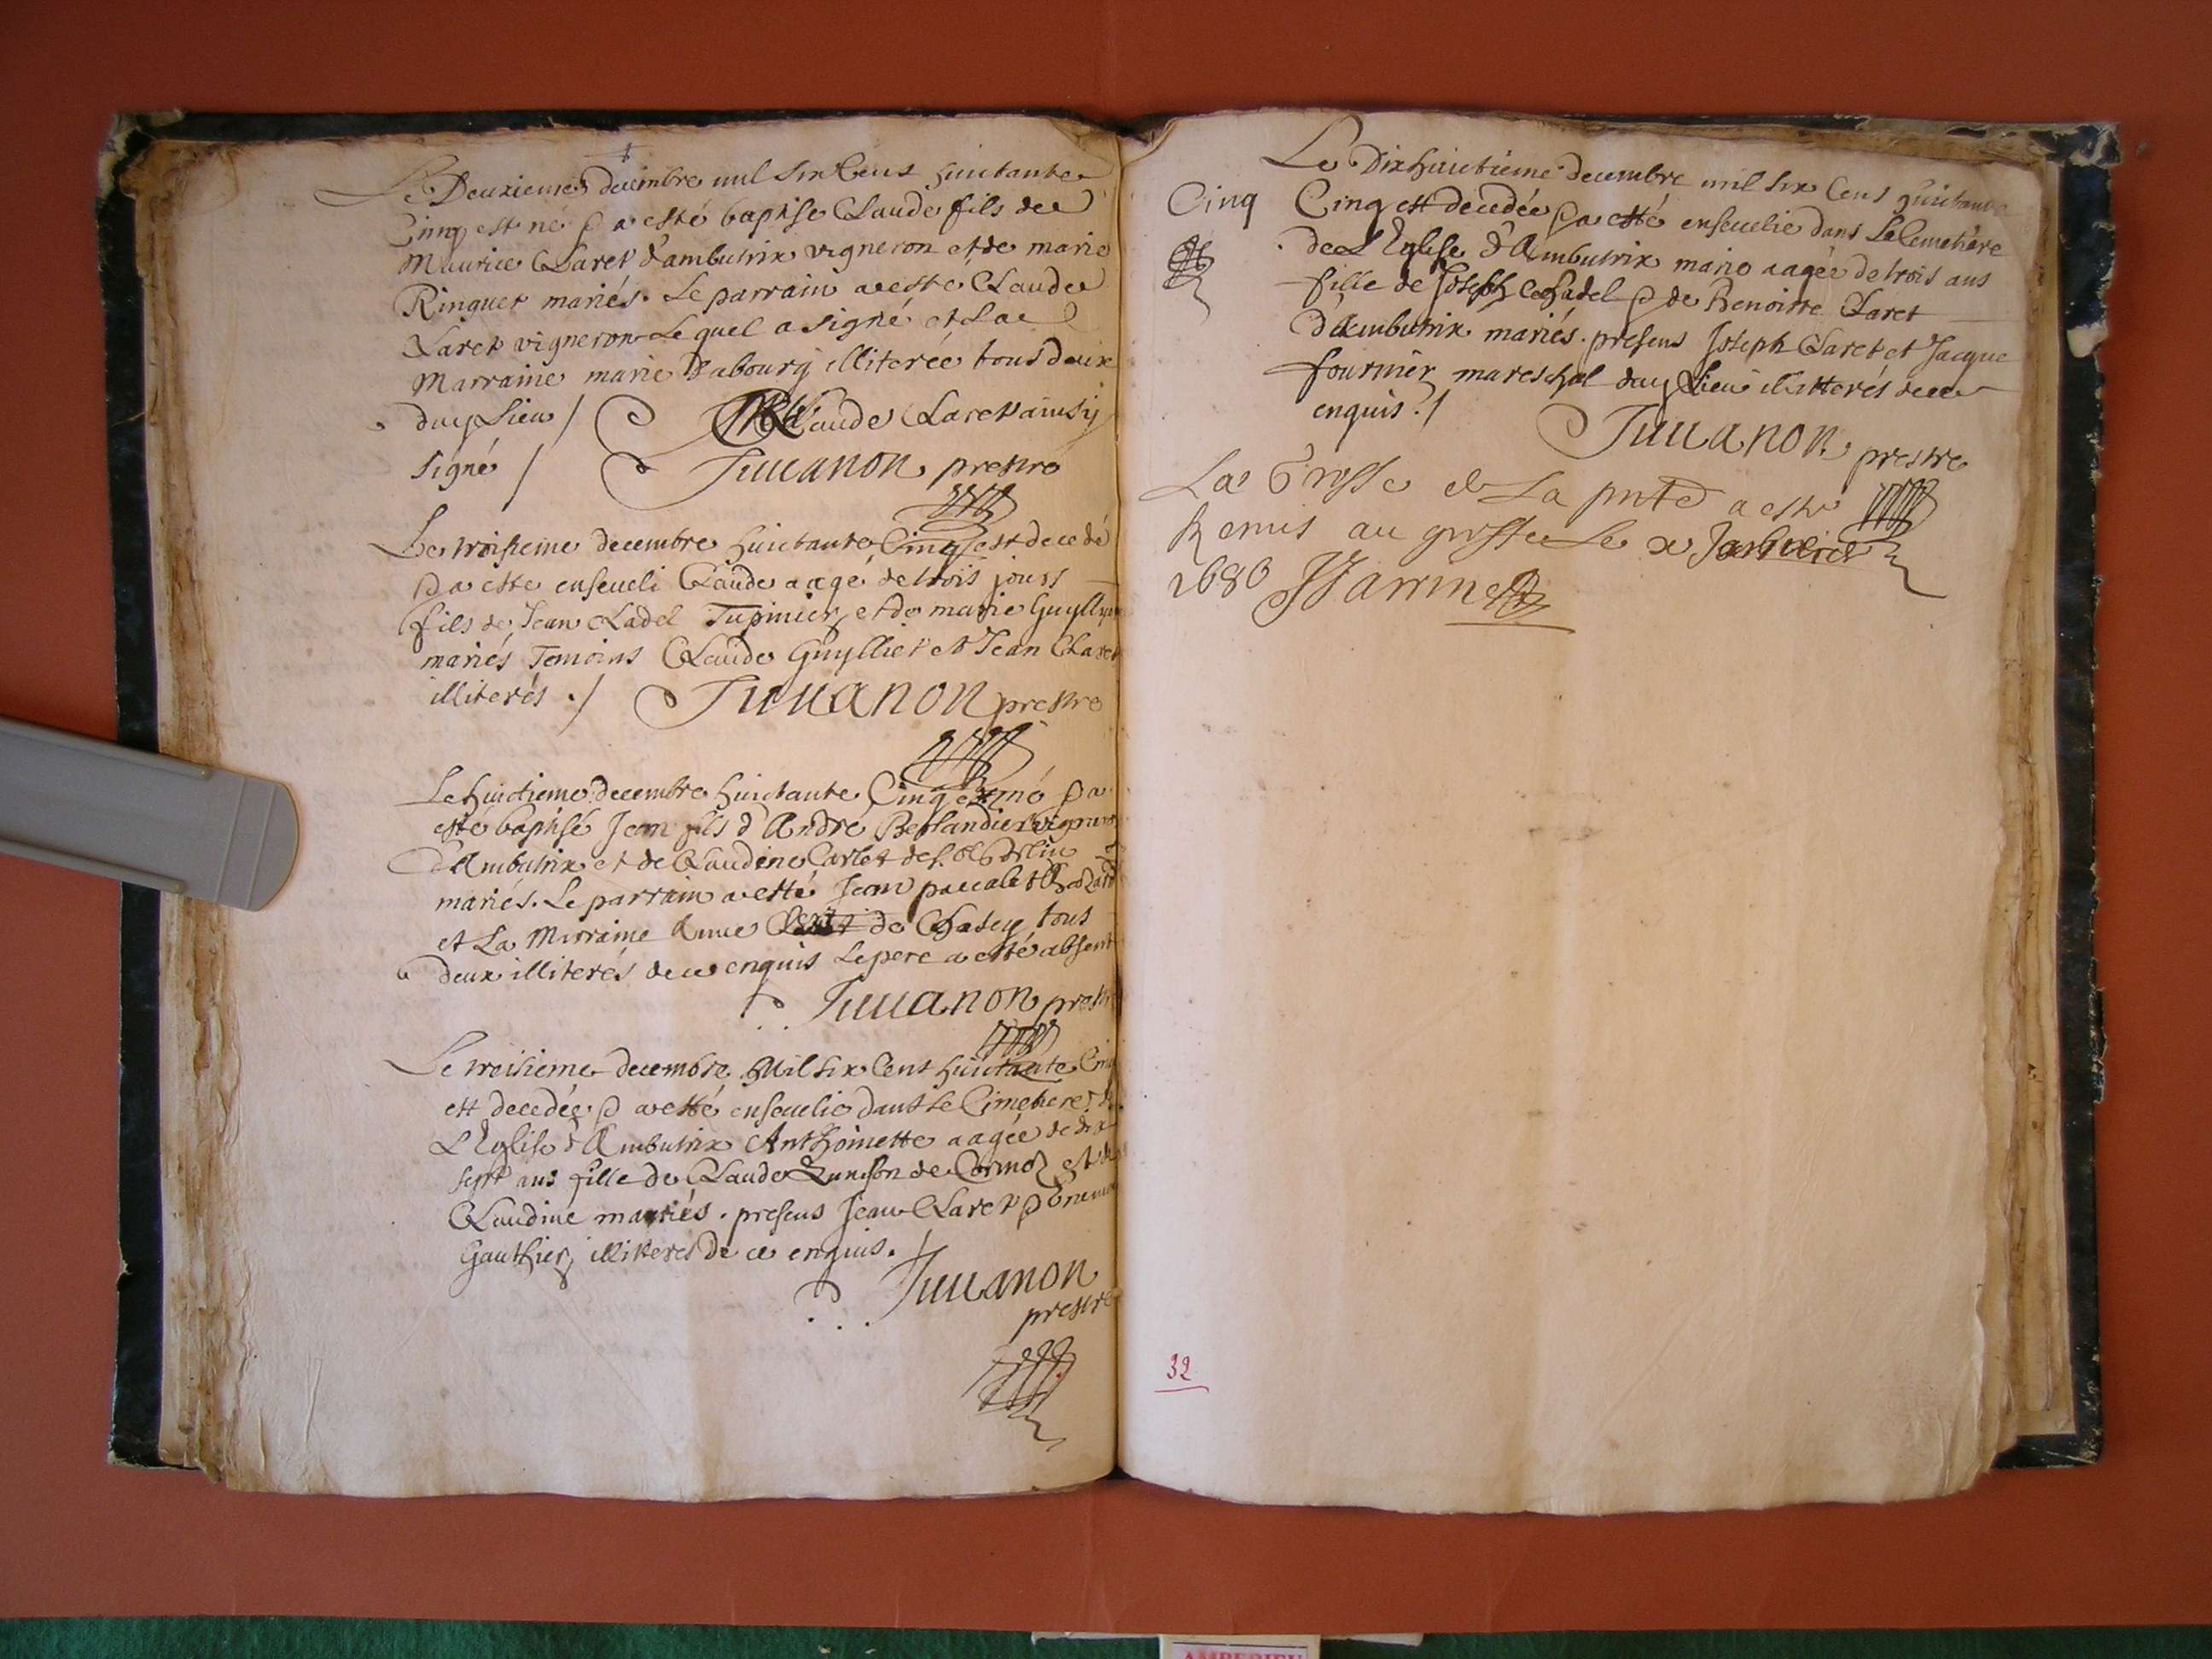 Le Deuxieme decembre mil six Cens huictante
Cinq est né & a esté baptisé Claude fils de
Maurice Claret d'ambutrix vigneron et de marie
Ringuet mariés. Le parrain a esté Claude
Claret vigneron Lequel a signé et La
Marraine marie Dabourg illiterée tous deux
duq Lieu / Claude Claret ainsÿ
signé / Juuanon prestre
Le troisieme decembre huictante Cinq est decedé
& a esté enseueli Claude aagé de trois jours
fils de Jean Cladel Tupinier et de marie
mariés Temoins Claude Guylliet et Jean Claret
illiterés ./ Juuanon prestre
Le huictieme decembre huictante Cinq est né & a
esté baptisé Jean fils d'André
d'Ambutrix et de Claudine Carlet
mariés. Le parrain a esté Jean
et La Marraine Anne de Chasey tous
deux illiterés de ce enquis Le pere a esté absent
Juuanon prestre
Le troisieme decembre Mil six Cent huictante Cinq
est decedée & a esté enseuelie dans Le Cimetiere de
L'Eglise d'Ambutrix Anthoinette aagée de dix
sept ans fille de Claude de Cormoz et de
Claudine mariés. presens Jean Claret &
Gauthier illiteres de ce enquis.
Juuanon
prestre
Le Dixhuictieme decembre mil six Cens huictante
Cinq Cinq est decedée & a esté enseuelie dans Le Cemetiere
de L'Eglise d'Ambutrix marie aagée de trois ans
fille de Joseph Cladel & de Benoitte Claret
d'Ambutrix mariés. presens Joseph Claret et Jacque
fournier mareschal duq Lieu illitterés de ce
enquis ./
Juuanon prestre
La Grosse de La pnte a esté
Remis au greffe Le x
1686
32